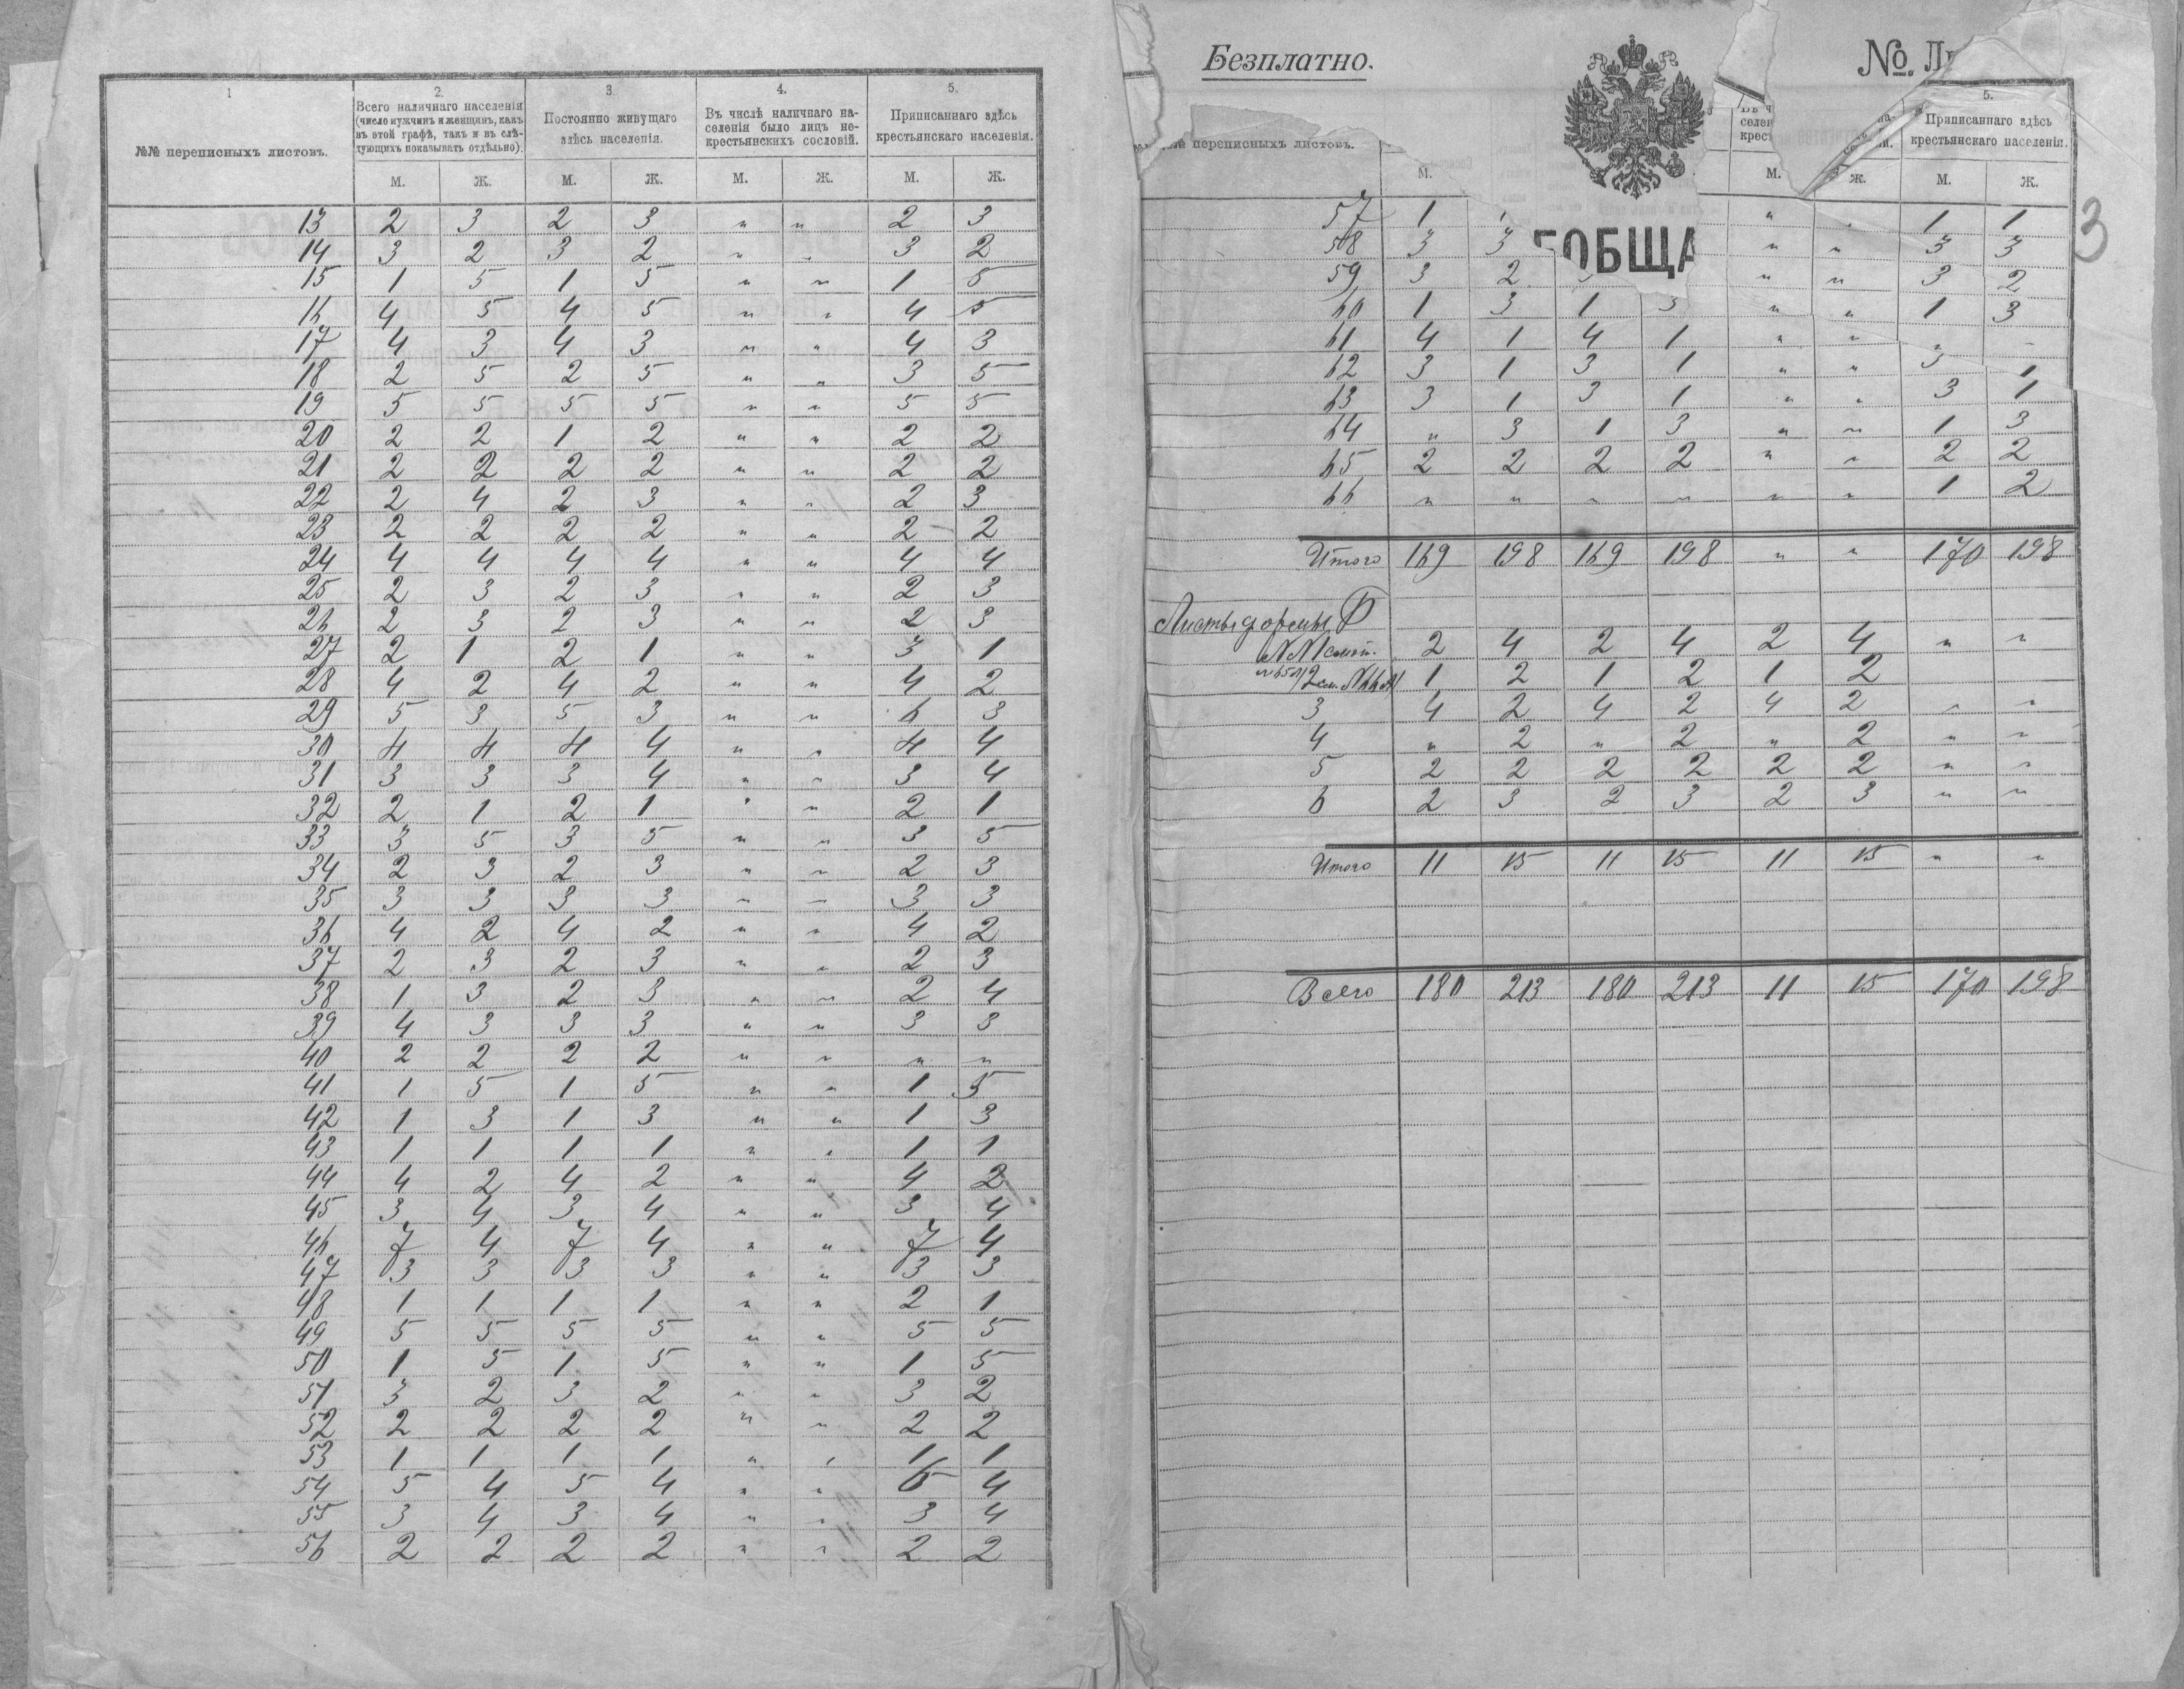 1 2. 3. 4. 5.
№№ переписныхъ листовъ. Всего наличнаго населенія (число мужчинъ и женщинъ, какъ въ этой графѣ, такъ и въ слѣдующихъ показывать отдѣльно). Постоянно живущаго здѣсь населенія. Въ числѣ наличнаго населенія было лицъ некрестьянскихъ сословій. Приписаннаго здѣсь крестьянскаго населенія.
М. Ж. М. Ж. М. Ж. М. Ж.
13 2 3 2 3 " " 2 3
14 3 2 3 2 " " 3 2
15 1 5 1 5 " " 1 5
16 4 5 4 5 " " 4 5
17 4 3 4 3 " " 4 3
18 2 5 2 5 " " 3 5
19 5 5 5 5 " " 5 5
20 2 2 1 2 " " 2 2
21 2 2 2 2 " " 2 2
22 2 4 2 3 " " 2 3
23 2 2 2 2 " " 2 2
24 4 4 4 4 " " 4 4
25 2 3 2 3 " " 2 3
26 2 3 2 3 " " 2 3
27 2 1 2 1 " " 3 1
28 4 2 4 2 " " 4 2
29 5 3 5 3 " " 6 3
30 4 4 4 4 " " 4 4
31 3 3 3 4 " " 3 4
32 2 1 2 1 " " 2 1
33 3 5 3 5 " " 3 5
34 2 3 2 3 " " 2 3
35 3 3 3 3 " " 3 3
36 4 2 4 2 " " 4 2
37 2 3 2 3 " " 2 3
38 1 3 2 3 " " 2 4
39 4 3 3 3 " " 3 3
40 2 2 2 2 " " " "
41 1 5 1 5 " " 1 5
42 1 3 1 3 " " 1 3
43 1 1 1 1 " " 1 1
44 4 2 4 2 " " 4 2
45 3 4 3 4 " " 3 4
46 7 4 7 4 " " 7 4
47 3 3 3 3 " " 3 3
48 1 1 1 1 " " 2 1
49 5 5 5 5 " " 5 5
50 1 5 1 5 " " 1 5
51 3 2 3 2 " " 3 2
52 2 2 2 2 " " 2 2
53 1 1 1 1 " " 1 1
54 5 4 5 4 " " 6 4
55 3 4 3 4 " " 3 4
56 2 2 2 2 " " 2 2
Безплатно. №.
5.
переписныхъ листовъ. Приписаннаго здѣсь крестьянскаго населенія.
М. М. Ж. М. Ж.
ОБЩА
3
57 1 " " 1 1
58 3 3 " " 3 3
59 3 2 " " 3 2
60 1 3 1 3 " " 1 3
61 4 1 4 1 " " " "
62 3 1 3 1 " " 3 1
63 3 1 3 1 " " 3 1
64 " 3 1 3 " " 1 3
65 2 2 2 2 " " 2 2
66 " " " " " " 1 2
Итого 169 198 169 198 " " 170 198
Листы формы
2 4 2 4 2 4 " "
1 2 1 2 1 2
3 4 2 4 2 4 2 " "
4 " 2 " 2 " 2 " "
5 2 2 2 2 2 2 " "
6 2 3 2 3 2 3 " "
Итого 11 15 11 15 11 15 " "
Всего 180 213 180 213 11 15 170 198